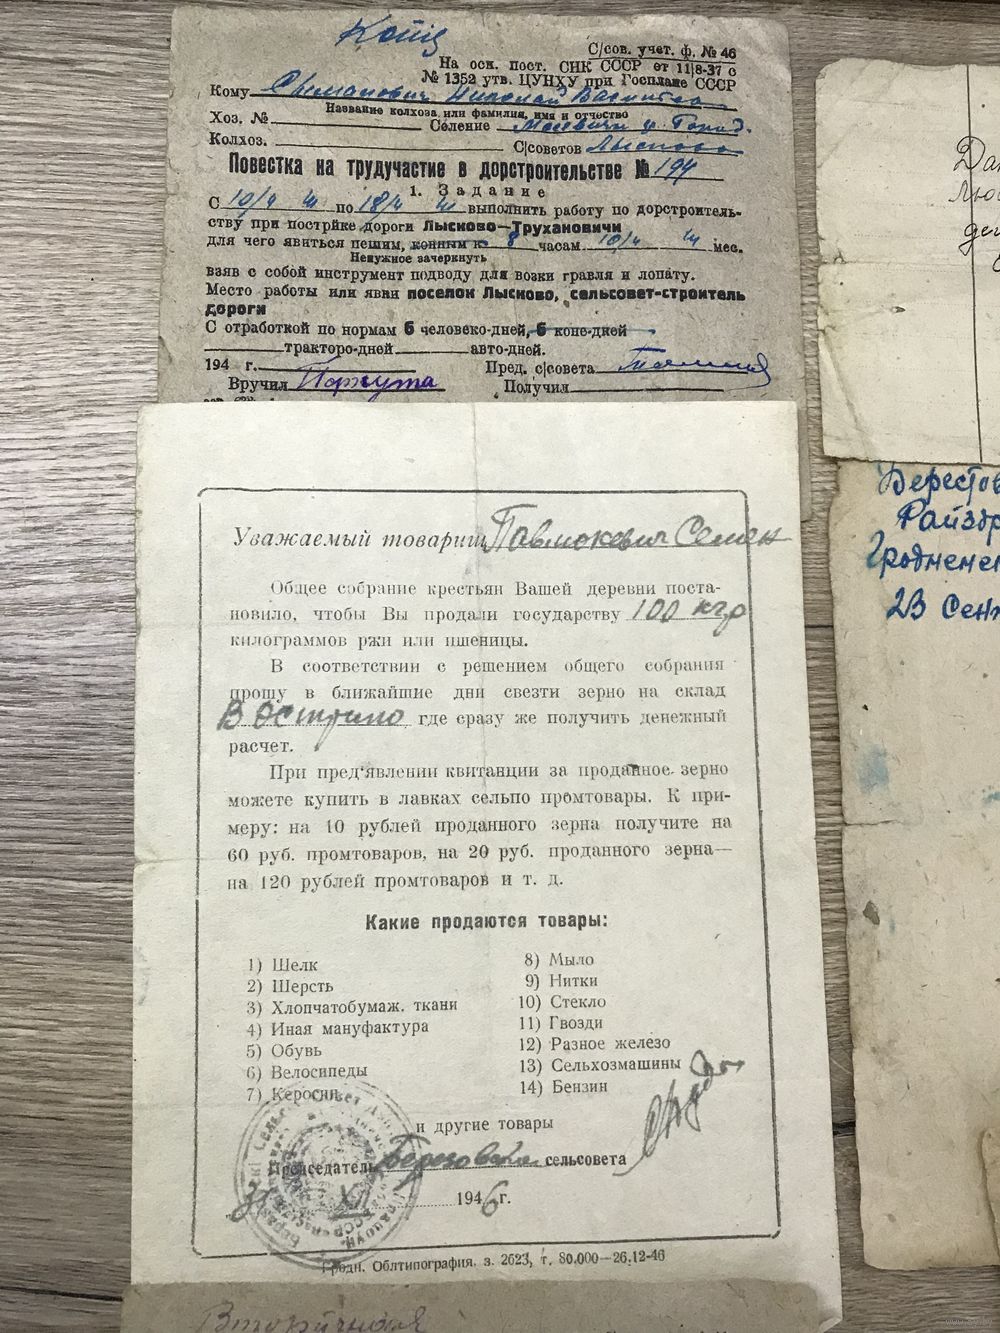 Копия
С/сов. учет. ф. № 46
На осн. пост. СНК СССР от 11|8-37 с
№ 1352 утв. ЦУНХУ при Госплане СССР
Кому Николай
Название колхоза или фамилия, имя и отчество
Хоз. № Селение
Колхоз. С|советов Лысково
Повестка на трудучастие в дорстроительстве № 194
1. Задание
С 10/4 по 18/4 выполнить работу по дорстроитель-
ству при постряке дороги Лысково—Трухановичи
для чего явиться пешим, конным к 8 часам 10/4 мес.
Ненужное зачеркнуть
взяв с собой инструмент подводу для возки гравля и лопату.
Место работы или явки поселок Лысково, сельсовет-строитель
дороги
С отработкой по нормам 6 человеко-дней, 6 коне-дней
тракторо-дней авто-дней.
194 г. Пред. с|совета
Вручил Паркута Получил
Уважаемый товарищ Павлюкевич Семен
Общее собрание крестьян Вашей деревни поста-
новило, чтобы Вы продали государству 100 кгр
килограммов ржи или пшеницы.
В соответствии с решением общего собрания
прошу в ближайшие дни свезти зерно на склад
В Острино где сразу же получить денежный
расчет.
При пред'явлении квитанции за проданное зерно
можете купить в лавках сельпо промтовары. К при-
меру: на 10 рублей проданного зерна получите на
60 руб. промтоваров, на 20 руб. проданного зерна—
на 120 рублей промтоваров и т. д.
Какие продаются товары:
1) Шелк
2) Шерсть
3) Хлопчатобумаж. ткани
4) Иная мануфактура
5) Обувь
6) Велосипеды
7) Керосин
8) Мыло
9) Нитки
10) Стекло
11) Гвозди
12) Разное железо
13) Сельхозмашины
14) Бензин
и другие товары
Председатель Березовский сельсовета
31 XII 1946 г.
Гродн. Облтипография. з. 2623, т. 80.000—26.12-46
Вторичная
Берестов
Райздр
Гродненс
23 Сент